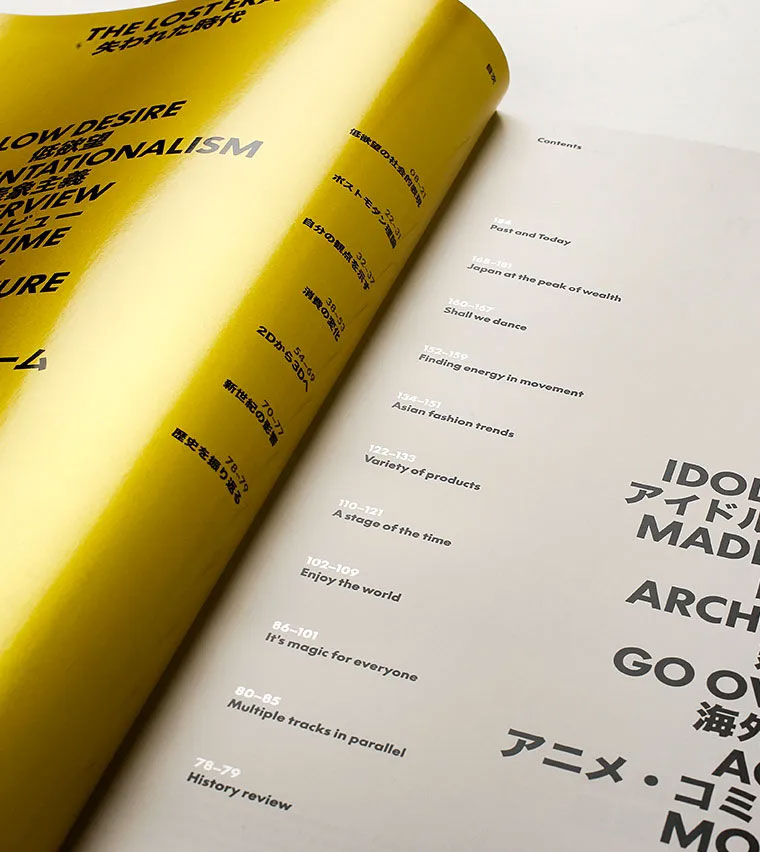 THE LOST ERA
失われた時代
目次
LOW DESIRE
低欲望
NTATIONALISM
象主義
ERVIEW
ビュー
UME
URE
ーム
08–21
低欲望の社会的表現
22–31
ポストモダン理論
32–37
自分の観点を示す
38–53
消費の変化
54–69
2Dから3Dへ
70–77
新世紀の影響
78–79
歴史を振り返る
Contents
184
Past and Today
168–181
Japan at the peak of wealth
160–167
Shall we dance
152–159
Finding energy in movement
134–151
Asian fashion trends
122–133
Variety of products
110–121
A stage of the time
102–109
Enjoy the world
86–101
It's magic for everyone
80–85
Multiple tracks in parallel
78–79
History review
IDOL
アイドル
MADE
ARCH
GO OV
海外
アニメ・コミ
MO